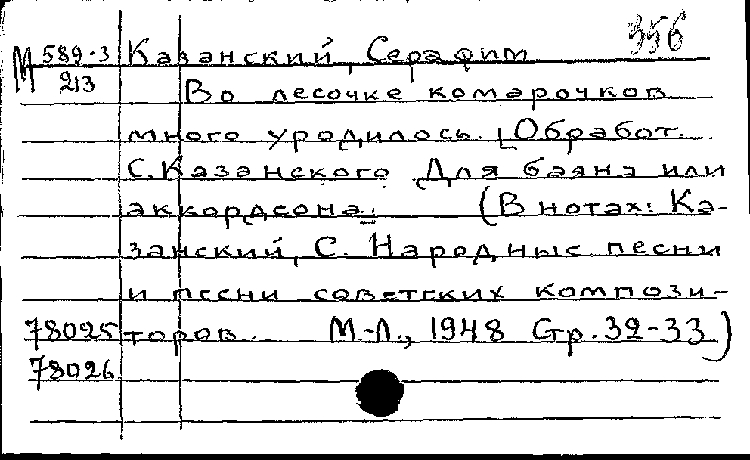 356
М 589-3 Казанский, Серафим
213 Во лесочке комарочков
много уродилось. [Обработ.
С. Казанского Для баяна или
аккордеона. (В нотах: Ка-
занский, С. Народные песни
и песни советских компози-
78025 торов. М.-Л., 1948 Стр. 32-33)
78026